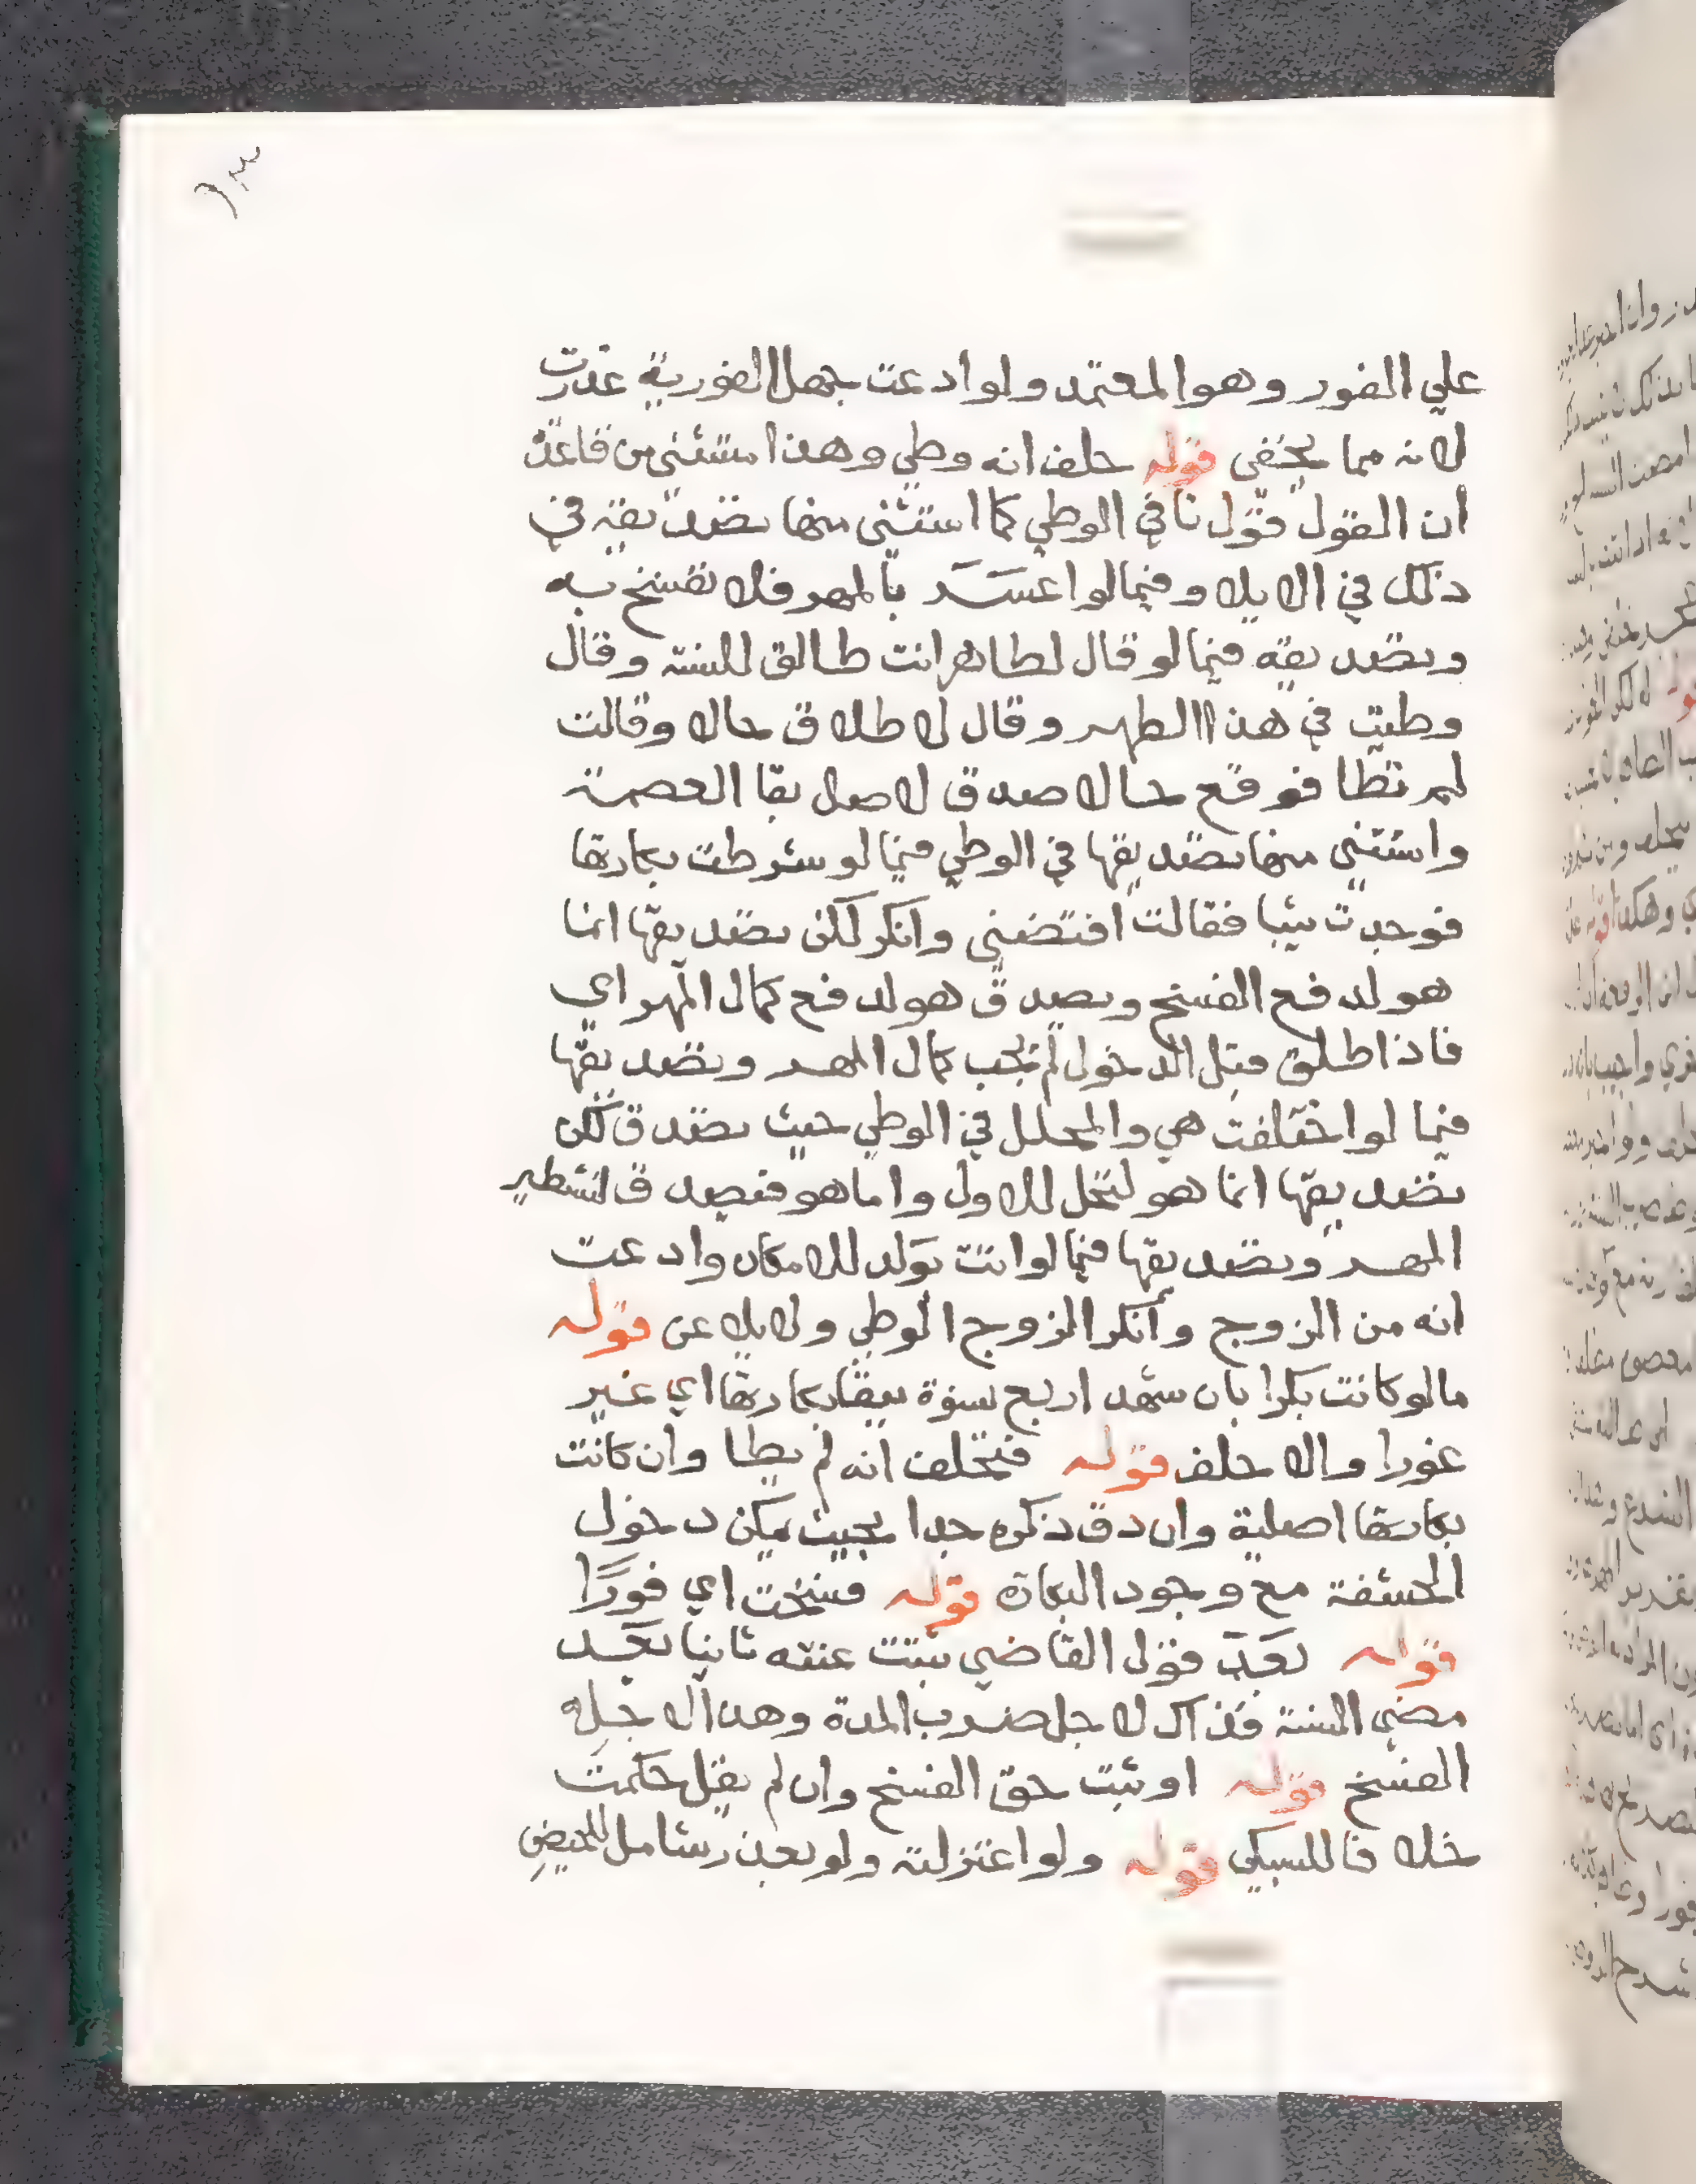 علي الفور وهو المعتمد ولو ادعت جهل الفورية عذرت
لانه مما يخفى قوله حلف انه وطي وهذا مستثنى من قاعدة
ان القول قول نافي الوطي كما استثنى منها تصديقه في
ذلك في الايلا وفيما لو اعسر بالمهر فلا تفسخ به
وتصديقه فيما لو قال لطاهر انت طالق للسنة وقال
وطيت في هذا الطهر وقال لا طلاق حالا وقالت
لم تطا فوقع حالا صدق لاصل بقا العصمة
واستثنى منها تصديقها في الوطي فيما لو شرطت بكارتها
فوجدت ثيبا فقالت افتضني وانكر لكن تصديقها انما
هو لدفع الفسخ ويصدق هو لدفع كمال المهر اي
فاذا طلق قبل الدخول لم يجب كمال المهر وتصديقها
فيما لو اختلفت هي والمحلل في الوطي حيث تصدق لكن
تصديقها انما هو لتحل للاول واما هو فيصدق لتشطير
المهر وتصديقها فيما لو اتت بولد للامكان وادعت
انه من الزوج وانكر الزوج الوطي ولا بلاعن قوله
ما لو كانت بكرا بان شهد اربع نسوة ببقا بكارتها اي غير
غورا والا حلف قوله فتحلف انه لم يطا وان كانت
بكارتها اصلية وان دق ذكره جدا بحيث يمكن دخول
الحشفة مع وجود البكارة قوله فسخت اي فورًا
قوله بعد قول القاضي ثبتت عنته ثانيا بعد
مضي السنة فذاك لاجل ضرب المدة وهذا لاجل
الفسخ قوله او ثبت حق الفسخ وان لم يقل حكمت
خلافا للسبكي قوله ولو اعتزلته ولو بعذر شامل للحيض